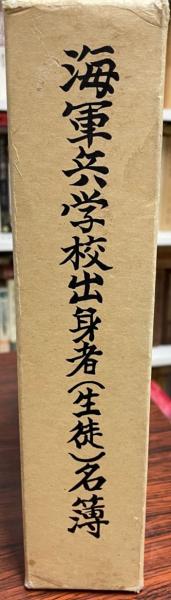 海軍兵学校出身者(生徒)名簿